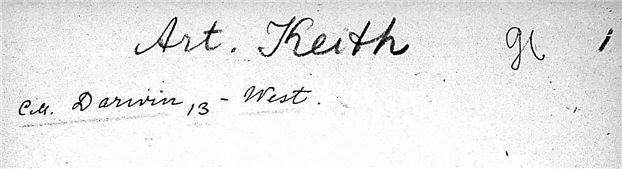 Art. Keith
Darwin, 13 - West.